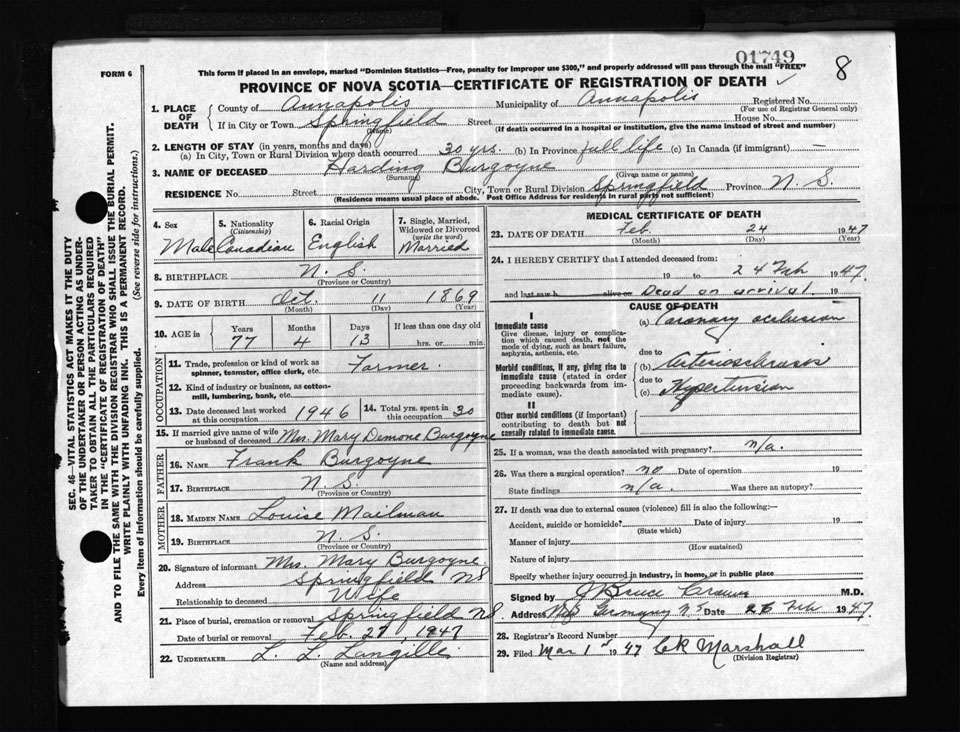 01749
8
FORM 6
This form if placed in an envelope, marked "Dominion Statistics—Free, penalty for improper use $300," and properly addressed will pass through the mail "FREE"
PROVINCE OF NOVA SCOTIA—CERTIFICATE OF REGISTRATION OF DEATH ✓
1. PLACE OF DEATH { County of Annapolis Municipality of Annapolis Registered No.
(For use of Registrar General only)
If in City or Town Springfield Street House No.
(Name) (If death occurred in a hospital or institution, give the name instead of street and number)
2. LENGTH OF STAY (in years, months and days)
(a) In City, Town or Rural Division where death occurred 30 yrs. (b) In Province full life (c) In Canada (if immigrant) —
3. NAME OF DECEASED Harding Burgoyne
(Surname) (Given name or names)
RESIDENCE No. Street City, Town or Rural Division Springfield Province N. S.
(Residence means usual place of abode. Post Office Address for residents in rural parts not sufficient)
4. Sex Male
5. Nationality (Citizenship) Canadian
6. Racial Origin English
7. Single, Married, Widowed or Divorced (write the word) Married
8. BIRTHPLACE N. S.
(Province or Country)
9. DATE OF BIRTH Oct. 11 1869
(Month) (Day) (Year)
10. AGE in Years Months Days If less than one day old
77 4 13 hrs. or min.
OCCUPATION
11. Trade, profession or kind of work as spinner, teamster, office clerk, etc. Farmer.
12. Kind of industry or business, as cotton-mill, lumbering, bank, etc.
13. Date deceased last worked at this occupation 1946
14. Total yrs. spent in this occupation 30
15. If married give name of wife or husband of deceased Mrs. Mary Demone Burgoyne
FATHER
16. NAME Frank Burgoyne
17. BIRTHPLACE N. S.
(Province or Country)
MOTHER
18. MAIDEN NAME Louise Mailman
19. BIRTHPLACE N. S.
(Province or Country)
20. Signature of informant Mrs. Mary Burgoyne
Address Springfield NS
Relationship to deceased Wife
21. Place of burial, cremation or removal Springfield NS
Date of burial or removal Feb. 27, 1947
22. UNDERTAKER L. L. Langille
(Name and address)
MEDICAL CERTIFICATE OF DEATH
23. DATE OF DEATH Feb. 24 1947
(Month) (Day) (Year)
24. I HEREBY CERTIFY that I attended deceased from:
19 to 24 Feb 1947.
and last saw h alive on Dead on arrival. 19
CAUSE OF DEATH
I
Immediate cause
Give disease, injury or complication which caused death, not the mode of dying, such as heart failure, asphyxia, asthenia, etc.
(a) Coronary occlusion
due to
Morbid conditions, if any, giving rise to immediate cause (stated in order proceeding backwards from immediate cause).
(b) Arteriosclerosis
due to
(c) Hypertension
II
Other morbid conditions (if important) contributing to death but not causally related to immediate cause.
25. If a woman, was the death associated with pregnancy? n/a.
26. Was there a surgical operation? no Date of operation 19
State findings n/a. Was there an autopsy?
27. If death was due to external causes (violence) fill in also the following:—
Accident, suicide or homicide? Date of injury 19
(State which)
Manner of injury
(How sustained)
Nature of injury
Specify whether injury occurred in industry, in home, or in public place
Signed by J Bruce M.D.
Address New Germany N.S Date 26 Feb 1947.
28. Registrar's Record Number
29. Filed Mar 1 1947 CK Marshall
(Division Registrar)
SEC. 46—VITAL STATISTICS ACT MAKES IT THE DUTY
OF THE UNDERTAKER OR PERSON ACTING AS UNDERTAKER TO OBTAIN ALL THE PARTICULARS REQUIRED
IN THE "CERTIFICATE OF REGISTRATION OF DEATH"
AND TO FILE THE SAME WITH THE DIVISION REGISTRAR WHO SHALL ISSUE THE BURIAL PERMIT.
WRITE PLAINLY WITH UNFADING INK. THIS IS A PERMANENT RECORD.
Every item of information should be carefully supplied. (See reverse side for instructions.)